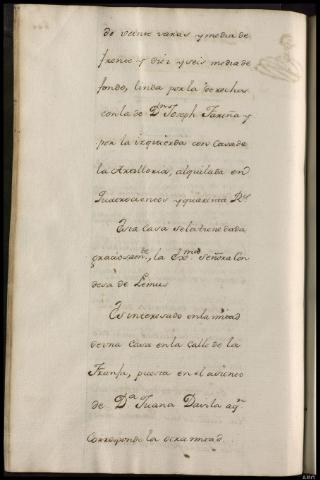 de veinte varas y media de
frente y diez y seis media de
fondo, linda por la derecha
con la de Dn. Joseph Fariña y
por la izquierda con Casa de
la Artilleria, alquilada en
Quatrocientos y quarenta Rs.
Esta Casa se la tiene dada
graciosamte., la Exma. Señora Con
desa de Lemus
Es interesado en la mitad
de una Casa en la Calle de la
Franja, puesta en el asiento
de Da. Juana Davila aqn.
Corresponde la otra mitad.